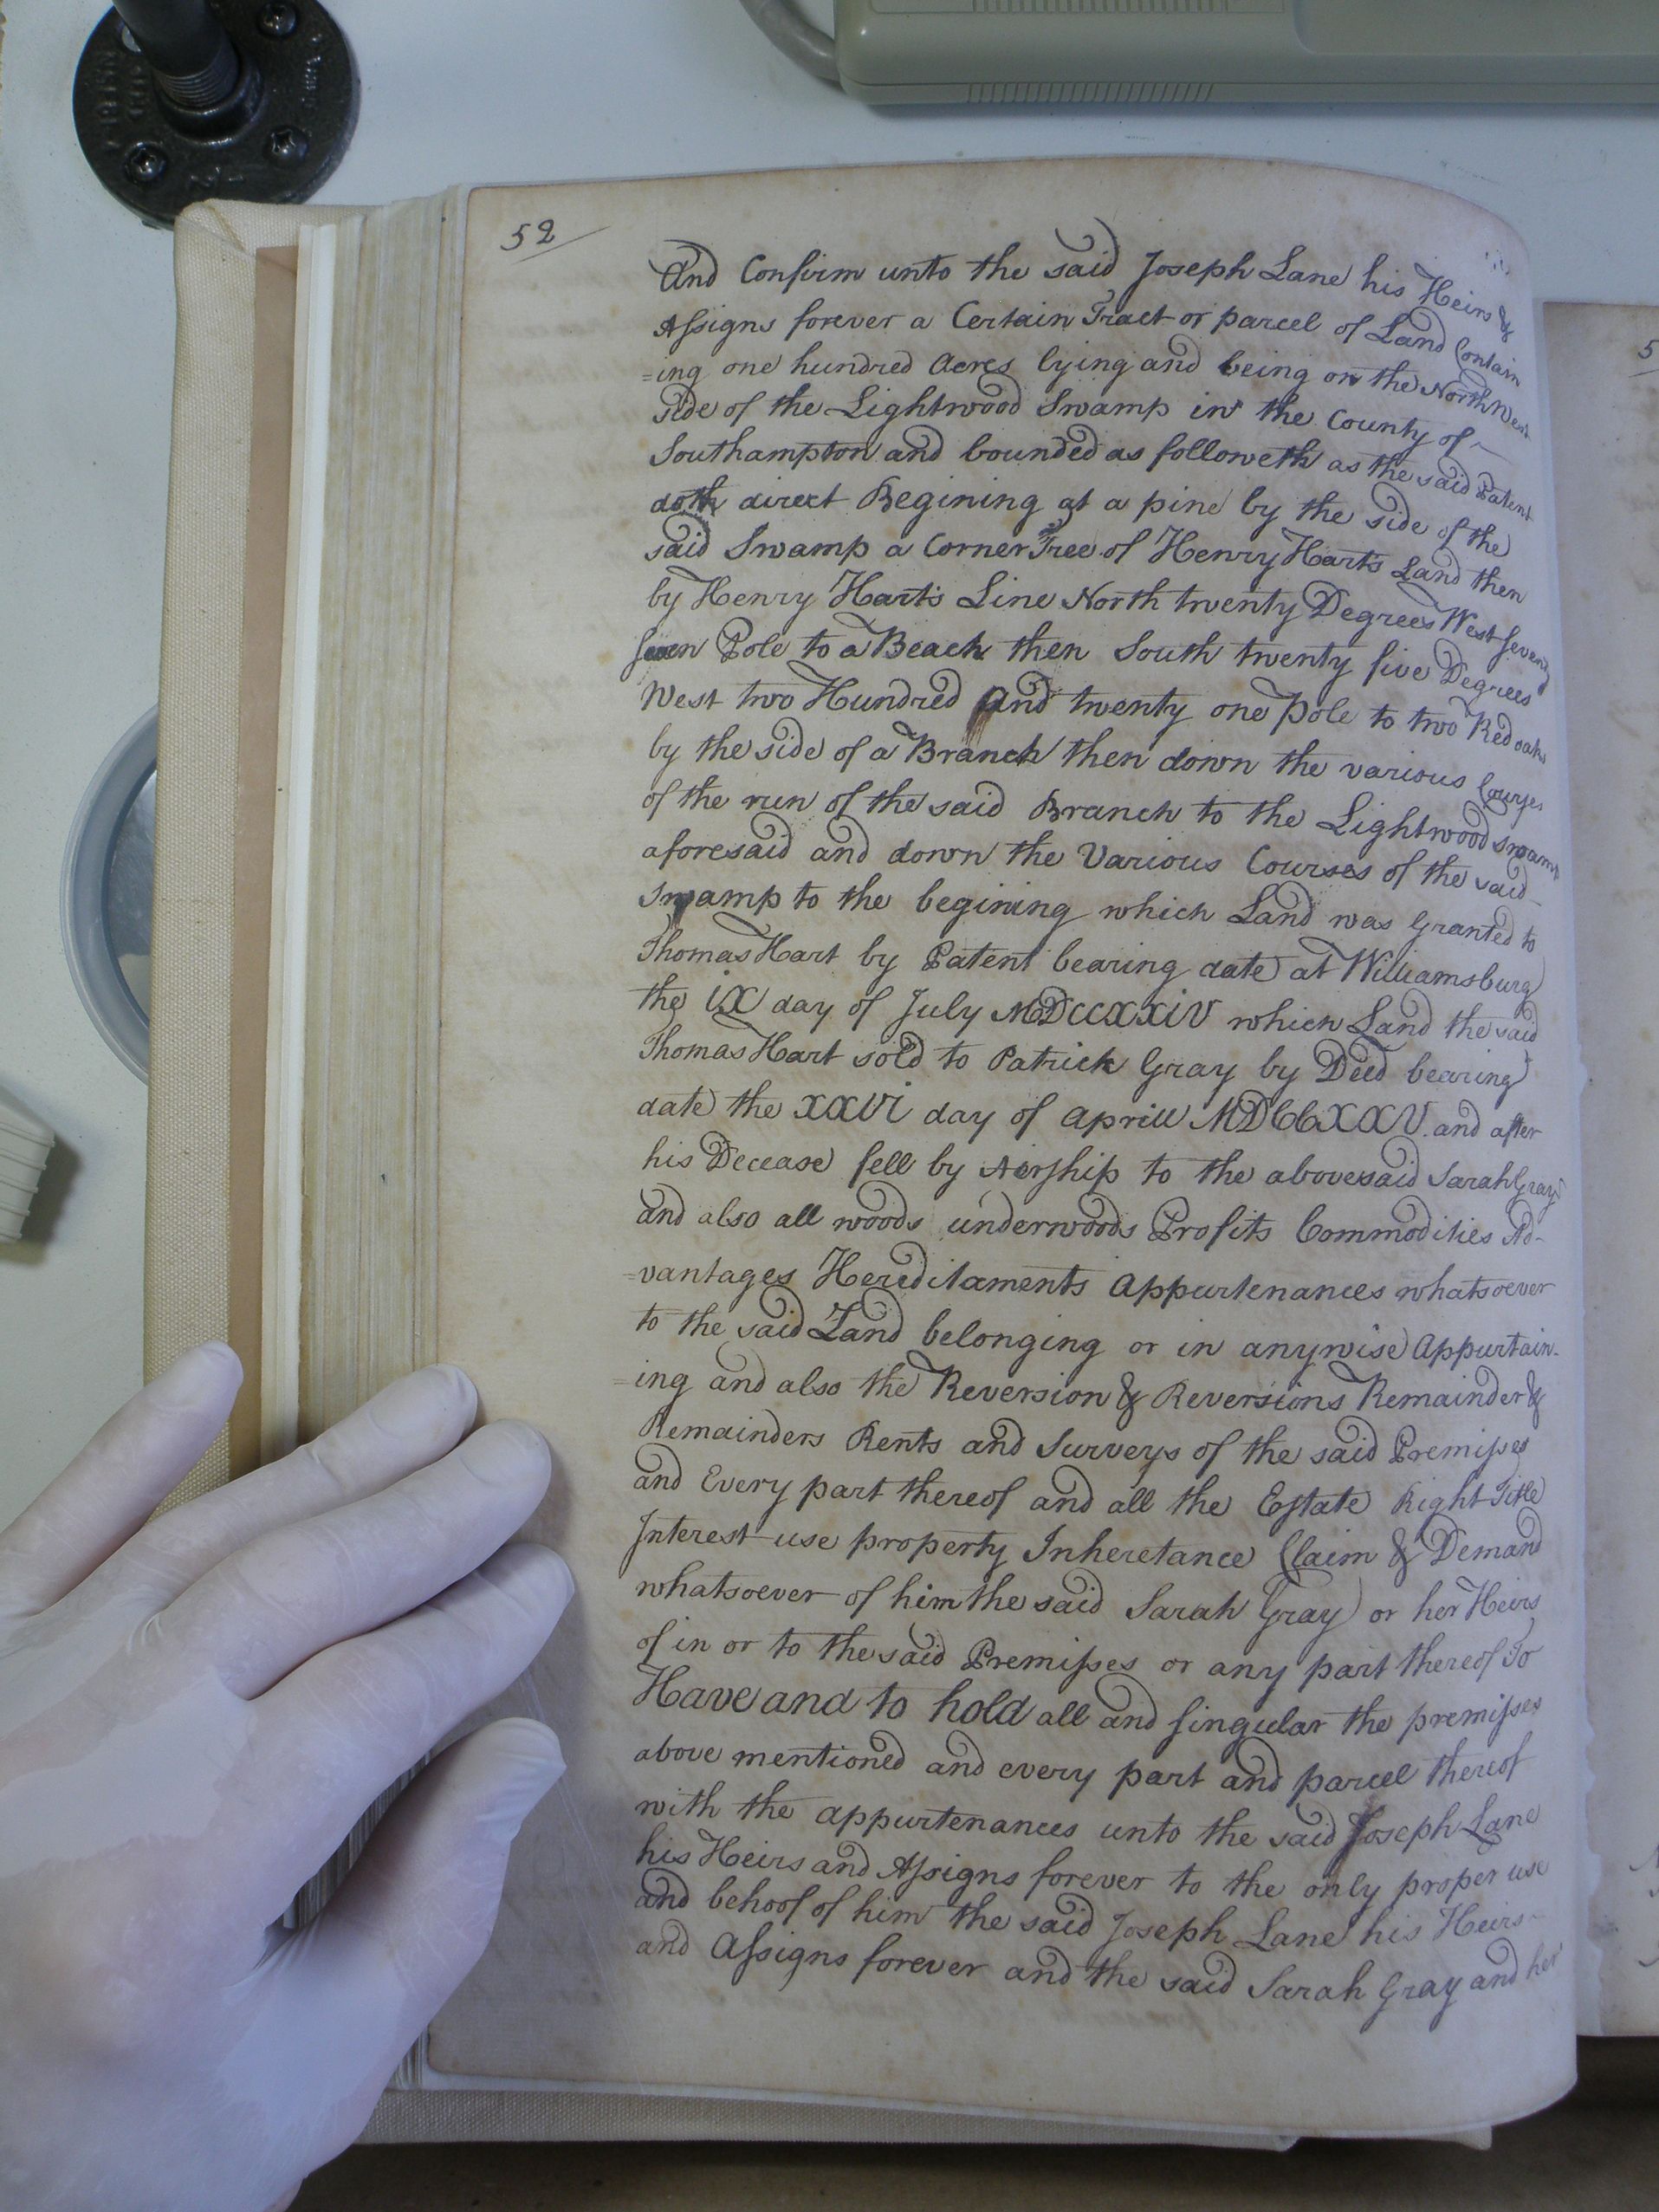 52
And Confirm unto the said Joseph Lane his Heirs &
Assigns forever a Certain Tract or parcel of Land Contain
=ing one hundred Acres lying and being on the North West
side of the Lightwood Swamp in the County of
Southampton and bounded as followeth as the said Patent
doth direct Begining at a pine by the side of the
said Swamp a Corner Tree of Henry Hart's Land then
by Henry Hart's Line North twenty Degrees West Seventy
seven Pole to a Beach then South twenty five Degrees
West two Hundred And twenty one Pole to two Red oaks
by the side of a Branch then down the various Courses
of the run of the said Branch to the Lightwood Swamp
aforesaid and down the Various Courses of the said
Swamp to the begining which Land was Granted to
Thomas Hart by Patent bearing date at Williamsburg
the iX day of July MDCCXXiV which Land the said
Thomas Hart sold to Patrick Gray by Deed bearing
date the XXVi day of Aprill MDCCXXV. and after
his Decease fell by Aership to the abovesaid Sarah Gray
and also all woods underwoods Profits Commodities Ad-
=vantages Hereditaments Appurtenances whatsoever
to the said Land belonging or in anywise Appurtain-
=ing and also the Reversion & Reversions Remainder &
Remainders Rents and Surveys of the said Premisses
and Every part thereof and all the Estate Right Title
Interest use property Inheretance Claim & Demand
whatsoever of him the said Sarah Gray or her Heirs
of in or to the said Premisses or any part thereof To
Have and to hold all and singular the premisses
above mentioned and every part and parcel thereof
with the appurtenances unto the said Joseph Lane
his Heirs and Assigns forever to the only proper use
and behoof of him the said Joseph Lane his Heirs
and Assigns forever and the said Sarah Gray and her